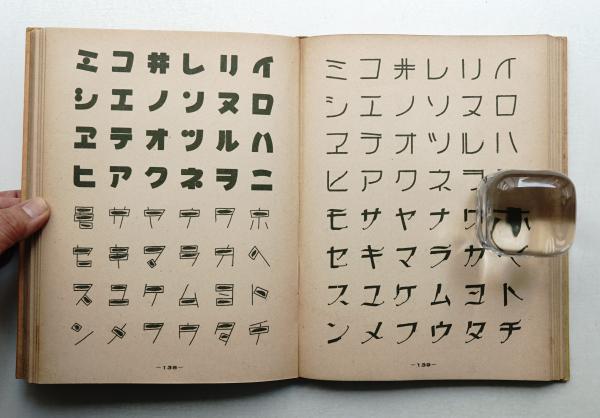 イロハニホヘトチ
リヌルヲワカヨタ
レソツネナラムウ
井ノオクヤマケフ
コエテアサキユメ
ミシヱヒモセスン
—138—
イロハホヘトチ
リヌルヲワカヨタ
レソツネナラムウ
井ノオクヤマケフ
コエテアサキユメ
ミシヱヒモセスン
—139—